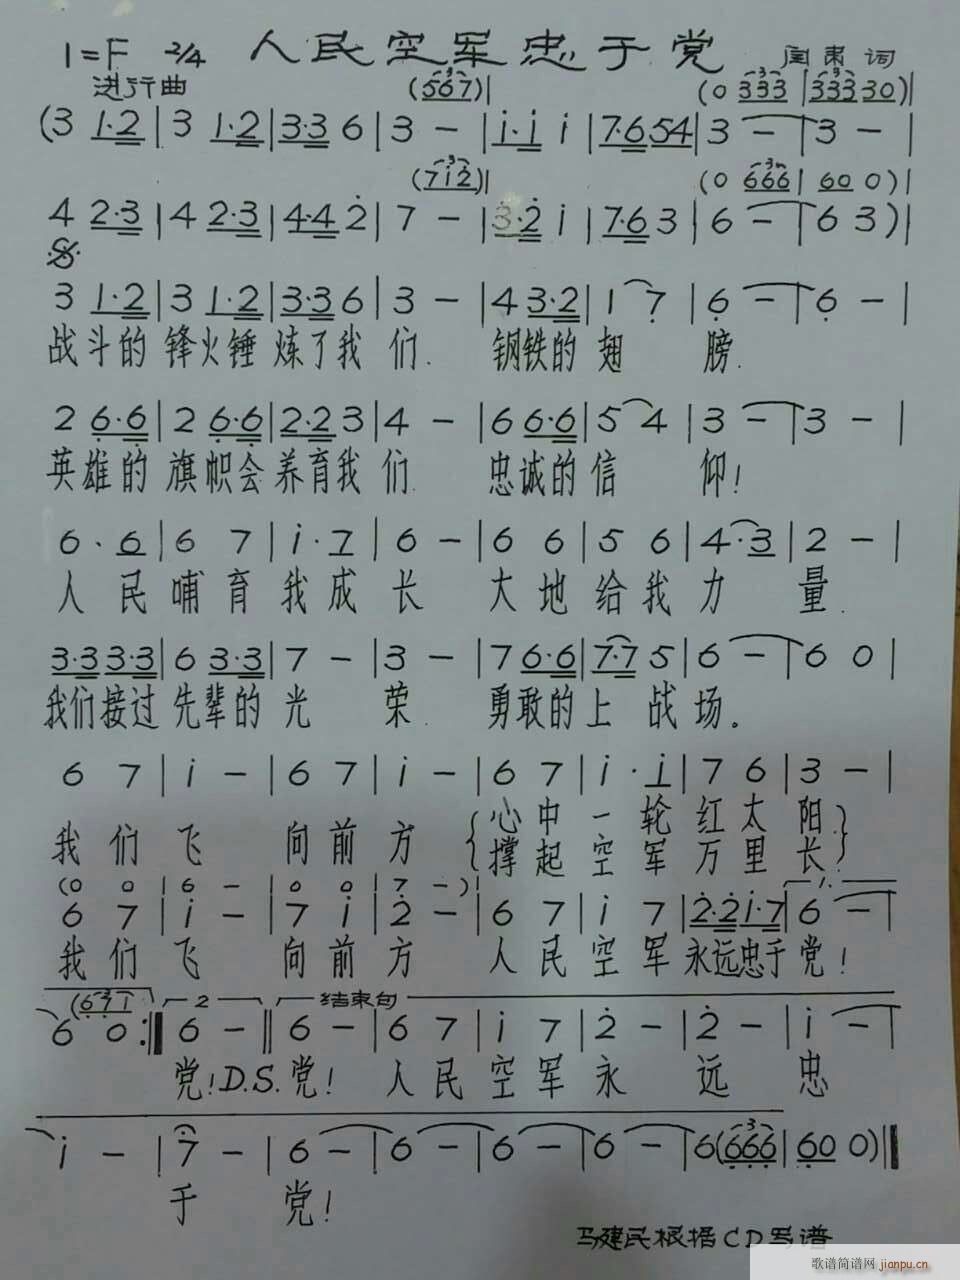 1=F 2/4 人民空军忠于党 闫肃 词
进行曲 (567)| (0 333 |333 30)|
(3 1·2 | 3 1·2 | 3·3 6 | 3 – | i·i i | 7·6 54 | 3 – | 3 – |
(712)| (0 666 | 60 0)|
4 2·3 | 4 2·3 | 4·4 2 | 7 – | 3·2 i | 7·6 3 | 6 – | 6 3) |
3 1·2 | 3 1·2 | 3·3 6 | 3 – | 4 3·2 | 1 7 | 6 – | 6 – |
战斗的 锋火锤 炼了我们. 钢铁的翅膀.
2 6·6 | 2 6·6 | 2·2 3 | 4 – | 6 6·6 | 5 4 | 3 – | 3 – |
英雄的 旗帜会 养育我们 忠诚的信仰!
6 · 6 | 6 7 | i · 7 | 6 – | 6 6 | 5 6 | 4·3 | 2 – |
人民哺育我成长 大地给我力量.
3·3 3·3 | 6 3·3 | 7 – | 3 – | 7 6·6 | 7·7 5 | 6 – | 6 0 |
我们接过 先辈的光荣. 勇敢的上战场。
6 7 | i – | 6 7 | i – | 6 7 | i · i | 7 6 | 3 – |
我们飞向前方 {心中一轮红太阳}
{撑起空军万里长}
(0 0 | 6 – | 0 0 | 7 –)| 1.
6 7 | i – | 7 i | 2 – | 6 7 | i 7 | 2·2 i·7 | 6 – |
我们飞向前方 人民空军永远忠于党!
(671) 2 结束句
6 0 :|| 6 – || 6 – | 6 7 | i 7 | 2 – | 2 – | i – |
党! D.S. 党! 人民空军永远忠
i – | 7 – | 6 – | 6 – | 6 – | 6 – | 6 (666 | 60 0) ||
于党!
马建民根据CD写谱
歌谱简谱网 jianpu.cn